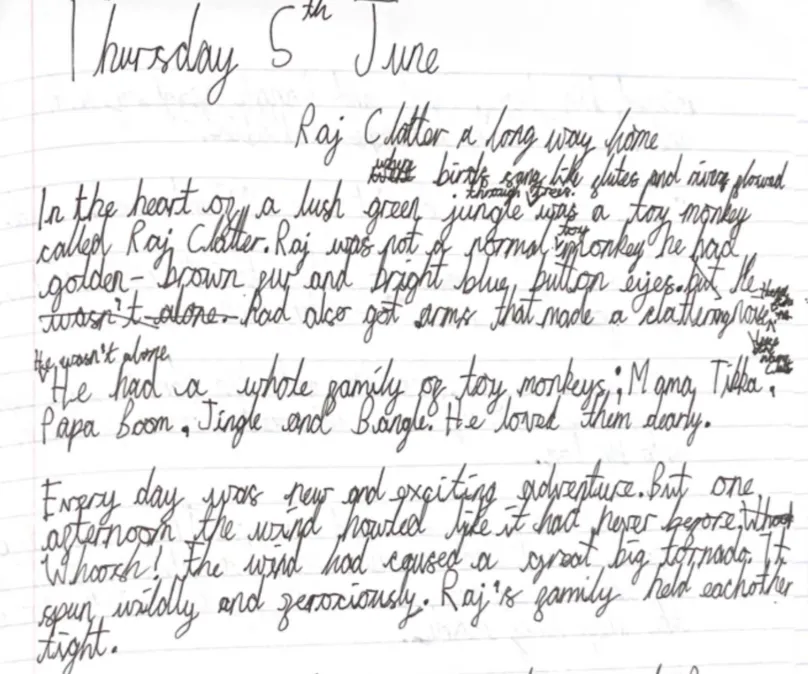 Thursday 5th June
Raj Clatter a long way home
birds sang like flutes and rivers flowed
through trees.
In the heart of a lush green jungle was a toy monkey
called Raj Clatter. Raj was not a normal toy monkey he had
golden-brown fur and bright blue button eyes. but He
wasn't alone. had also got arms that made a clattering
He wasn't alone
He had a whole family of toy monkeys; Mama Tikka,
Papa Boom, Jingle and Bangle. He loved them dearly.
Every day was new and exciting adventure. But one
afternoon the wind howled like it had never before,
Whoosh! the wind had caused a great big tornado. It
spun wildly and ferociously. Raj's family held eachother
tight.